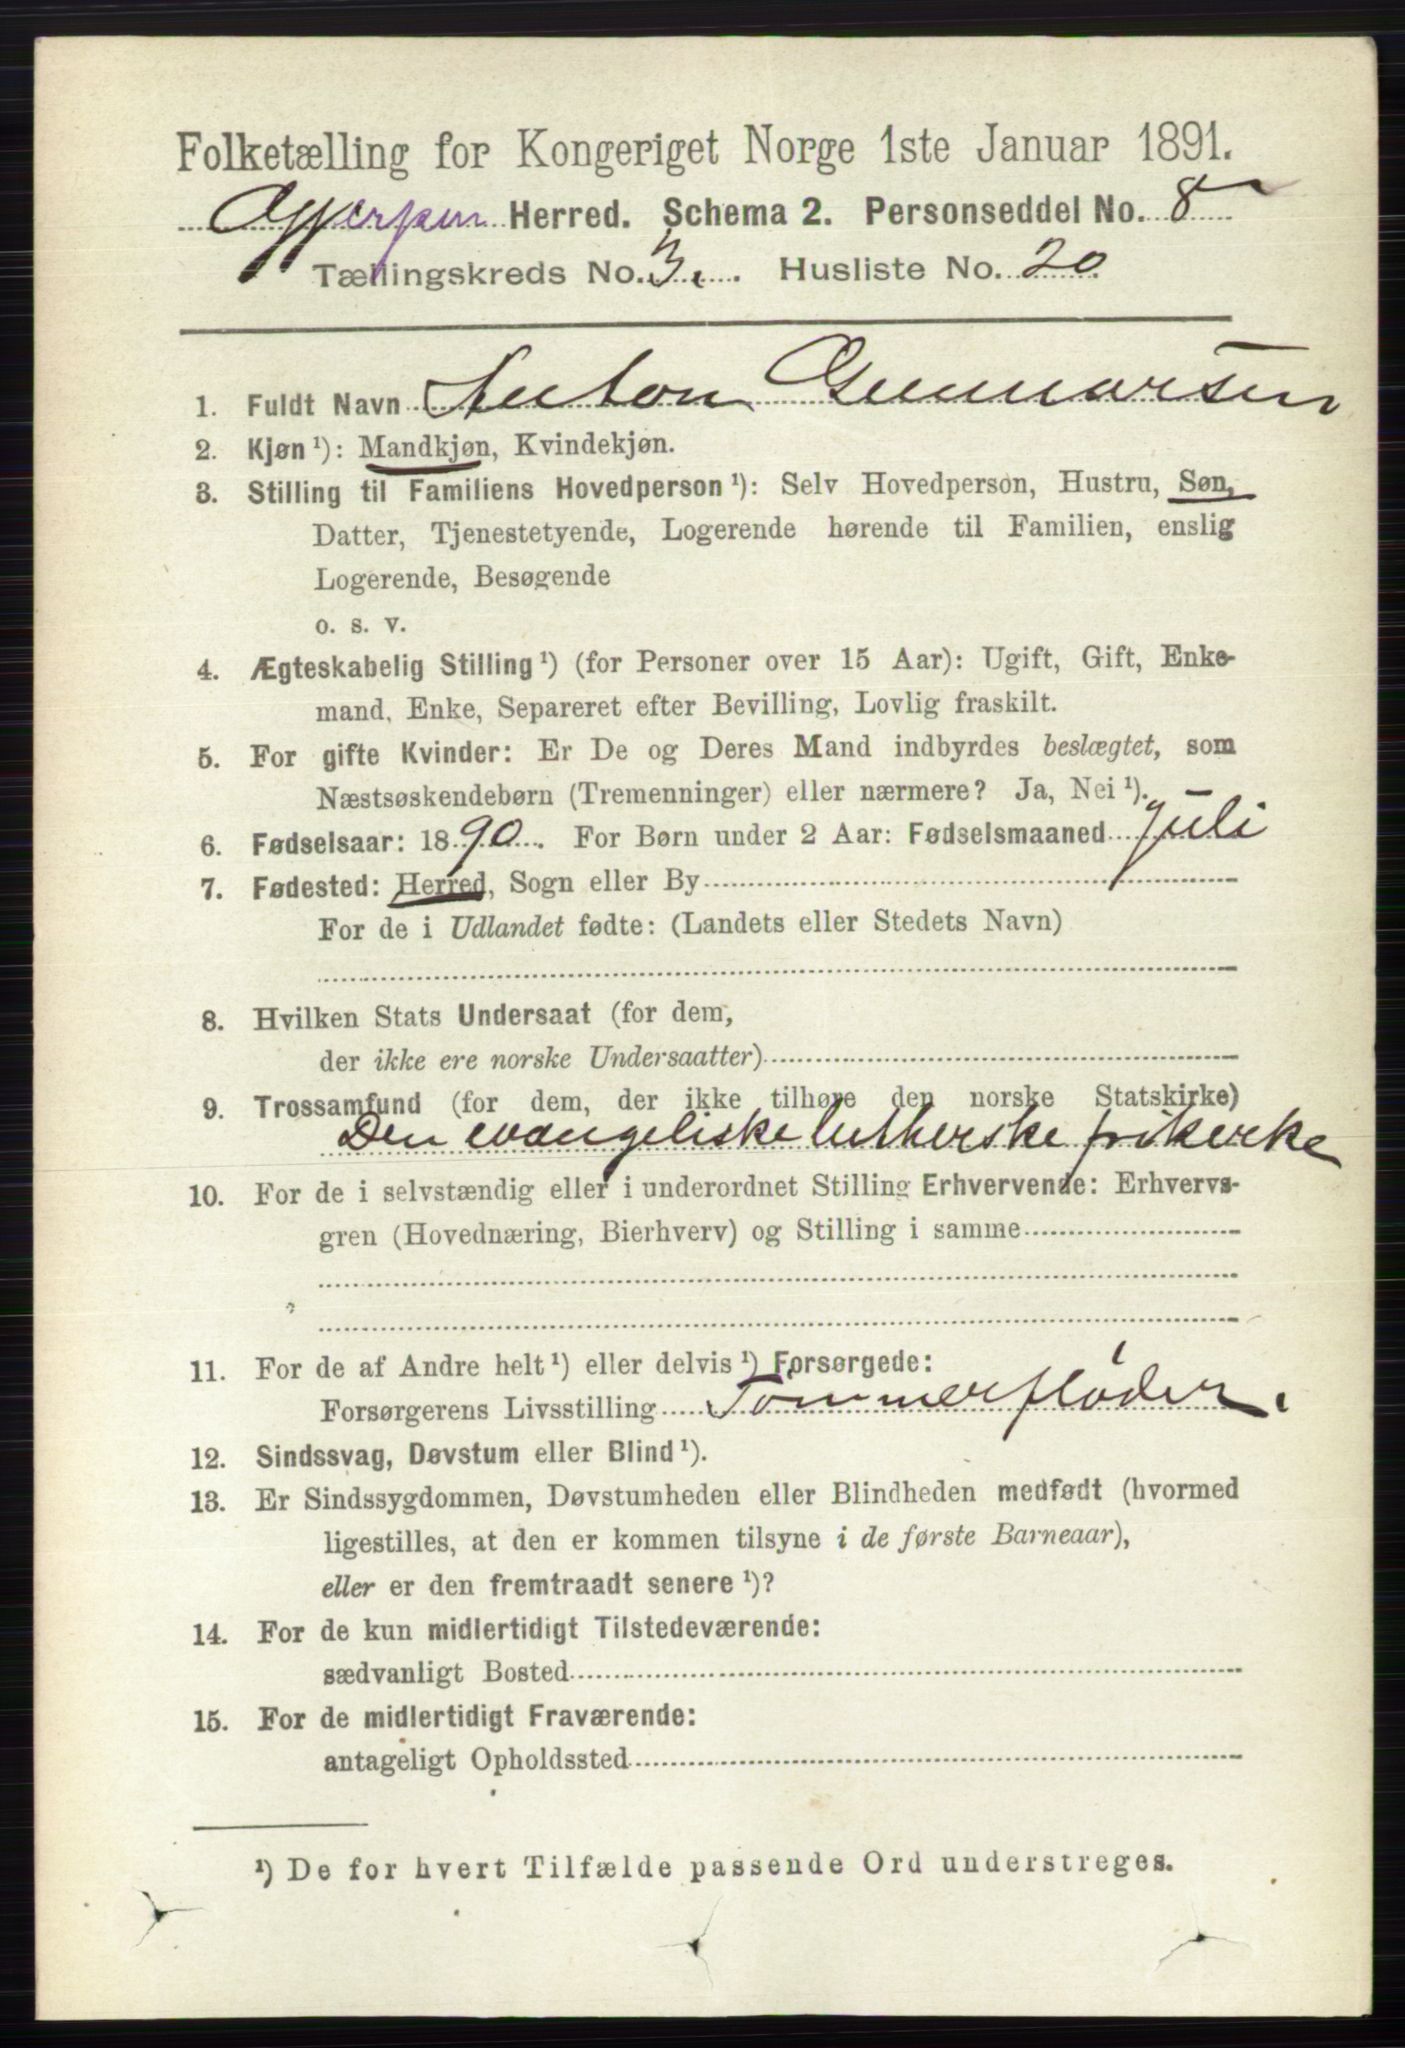 Folketælling for Kongeriget Norge 1ste Januar 1891.
Gjerpen Herred. Schema 2. Personseddel No. 8
Tællingskreds No. 3. Husliste No. 20
1. Fuldt Navn Anton Gunnarsen
2. Kjøn¹): Mandkjøn, Kvindekjøn.
3. Stilling til Familiens Hovedperson¹): Selv Hovedperson, Hustru, Søn,
Datter, Tjenestetyende, Logerende hørende til Familien, enslig
Logerende, Besøgende
o. s. v.
4. Ægteskabelig Stilling¹) (for Personer over 15 Aar): Ugift, Gift, Enke-
mand, Enke, Separeret efter Bevilling, Lovlig fraskilt.
5. For gifte Kvinder: Er De og Deres Mand indbyrdes beslægtet, som
Næstsøskendebørn (Tremenninger) eller nærmere? Ja, Nei¹).
6. Fødselsaar: 1890. For Børn under 2 Aar: Fødselsmaaned Juli
7. Fødested: Herred, Sogn eller By
For de i Udlandet fødte: (Landets eller Stedets Navn)
8. Hvilken Stats Undersaat (for dem,
der ikke ere norske Undersaatter)
9. Trossamfund (for dem, der ikke tilhøre den norske Statskirke)
Den evangeliske lutherske frikerke
10. For de i selvstændig eller i underordnet Stilling Erhvervende: Erhvervs-
gren (Hovednæring, Bierhverv) og Stilling i samme
11. For de af Andre helt¹) eller delvis¹) Forsørgede:
Forsørgerens Livsstilling Tømmerfløder.
12. Sindssvag, Døvstum eller Blind¹).
13. Er Sindssygdommen, Døvstumheden eller Blindheden medfødt (hvormed
ligestilles, at den er kommen tilsyne i de første Barneaar),
eller er den fremtraadt senere¹)?
14. For de kun midlertidigt Tilstedeværende:
sædvanligt Bosted
15. For de midlertidigt Fraværende:
antageligt Opholdssted
¹) De for hvert Tilfælde passende Ord understreges.